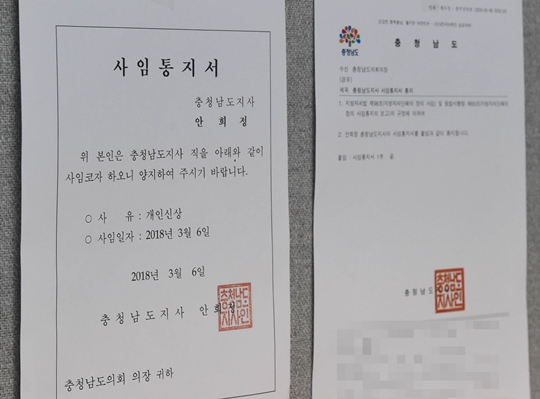 사임통지서
충청남도지사
안 희 정
위 본인은 충청남도지사 직을 아래와 같이
사임코자 하오니 양지하여 주시기 바랍니다.
○ 사 유 : 개인신상
○ 사임일자 : 2018년 3월 6일
2018년 3월 6일
충청남도지사 안희정
충청남도
지사인
충청남도의회 의장 귀하
충청남도
충 청 남 도
수신 충청남도의회의장
(경유)
제목 충청남도지사 사임통지서 통지
2. 안희정 충청남도지사의 사임통지서를 붙임과 같이 통지합니다.
붙임 : 사임통지서 1부. 끝.
충청남도
충청남도
지사인